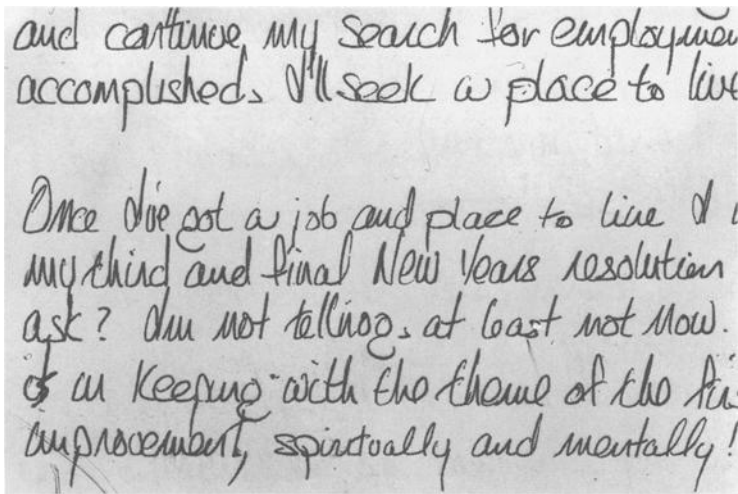 and continue my search for employmen
accomplished, I'll seek a place to live
Once I've got a job and place to live I
my third and final New Years resolution
ask? I'm not telling, at least not now.
is in keeping with the theme of the firs
improvement, spiritually and mentally!